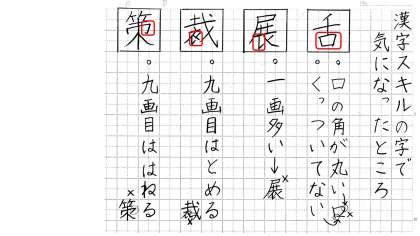 漢字スキルの字で
気になったところ
舌
。口の角が丸い口
。くっついてない
展
。一画多い→展
裁
。九画目はとめる
裁
策
。九画目ははねる
策